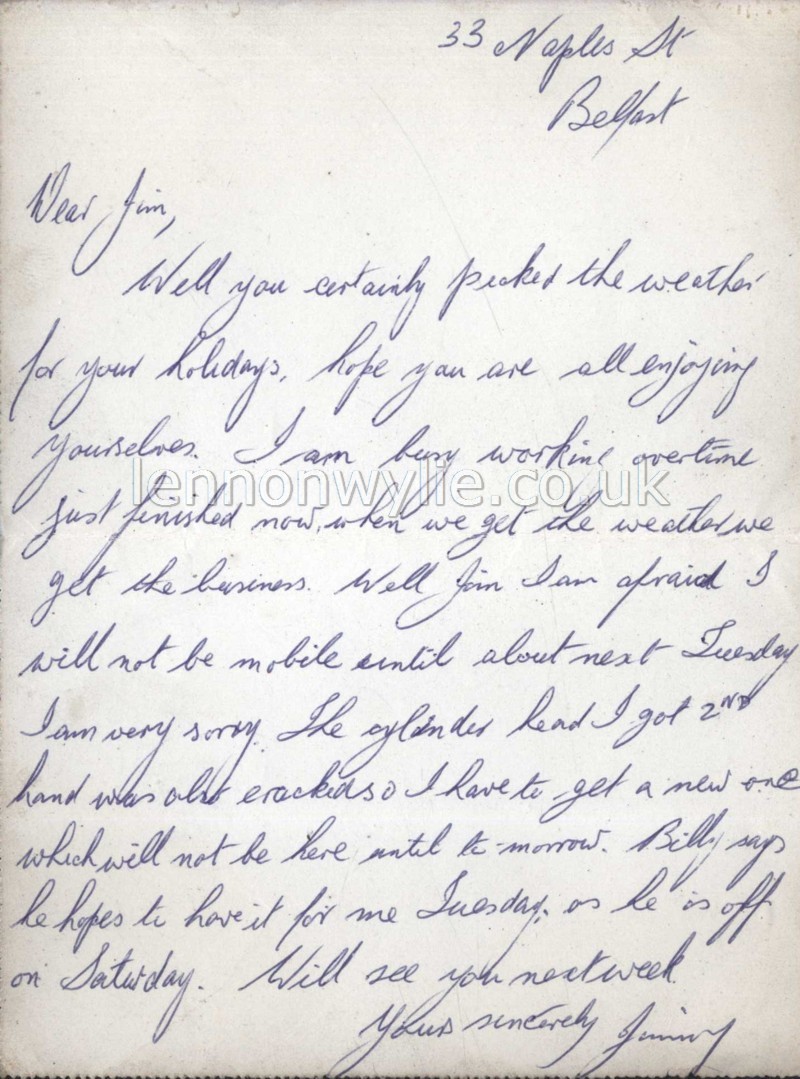 33 Naples St
Belfast
Dear Jim,
Well you certainly picked the weather
for your holidays, hope you are all enjoying
yourselves. I am busy working overtime
lennonwylie.co.uk
just finished now, when we get the weather we
get the business. Well Jim I am afraid I
will not be mobile until about next Tuesday
I am very sorry. The cylinder head I got 2ND
hand was also cracked so I have to get a new one
which will not be here until to-morrow. Billy says
he hopes to have it for me Tuesday, as he is off
on Saturday. Will see you next week.
Yours sincerely Jimmy